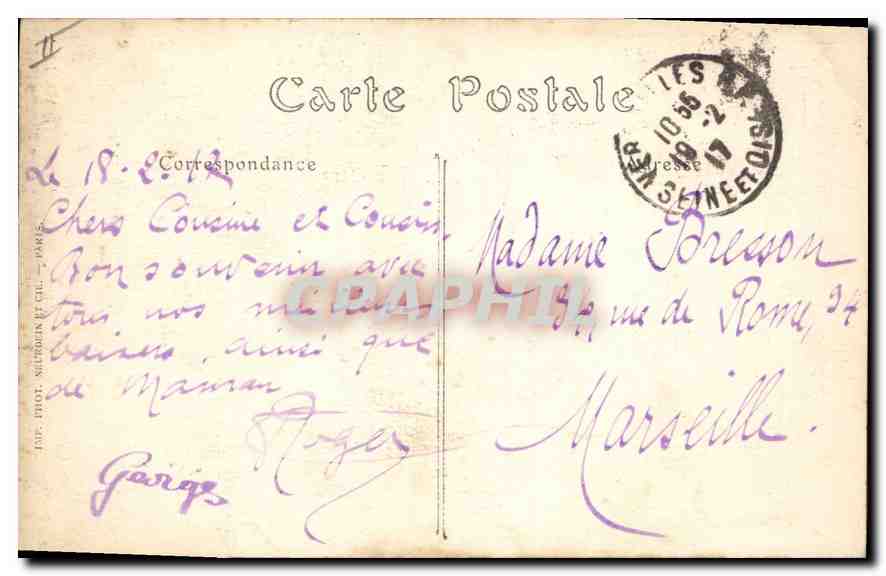 II
Carte Postale
Correspondance
Adresse
VERSAILLES R.P.
10 55
19 -2
17
SEINE ET OISE
Le 18-2-17
Chers Cousine et Cousin,
Bon souvenir avec
tous nos meilleurs
baisers, ainsi que
de Maman
Roger
George
Madame Bresson
94, rue de Rome, 94
Marseille.
IMP. PHOT. NEURDEIN ET CIE. — PARIS.
CPAPHIL